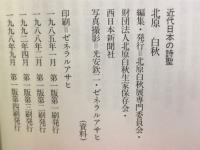 近代日本の詩聖
北原 白秋
編集・発行=北原白秋展専門委員会・
財団法人北原白秋生家保存会・
西日本新聞社
写真撮影=光安欽二・ゼネラルアサヒ
(資料)
印刷=ゼネラルアサヒ
一九八五年一月 第一版第一刷発行
一九八八年三月 第一版第二刷発行
一九九二年四月 第一版第三刷発行
一九九八年九月 第一版第四刷発行